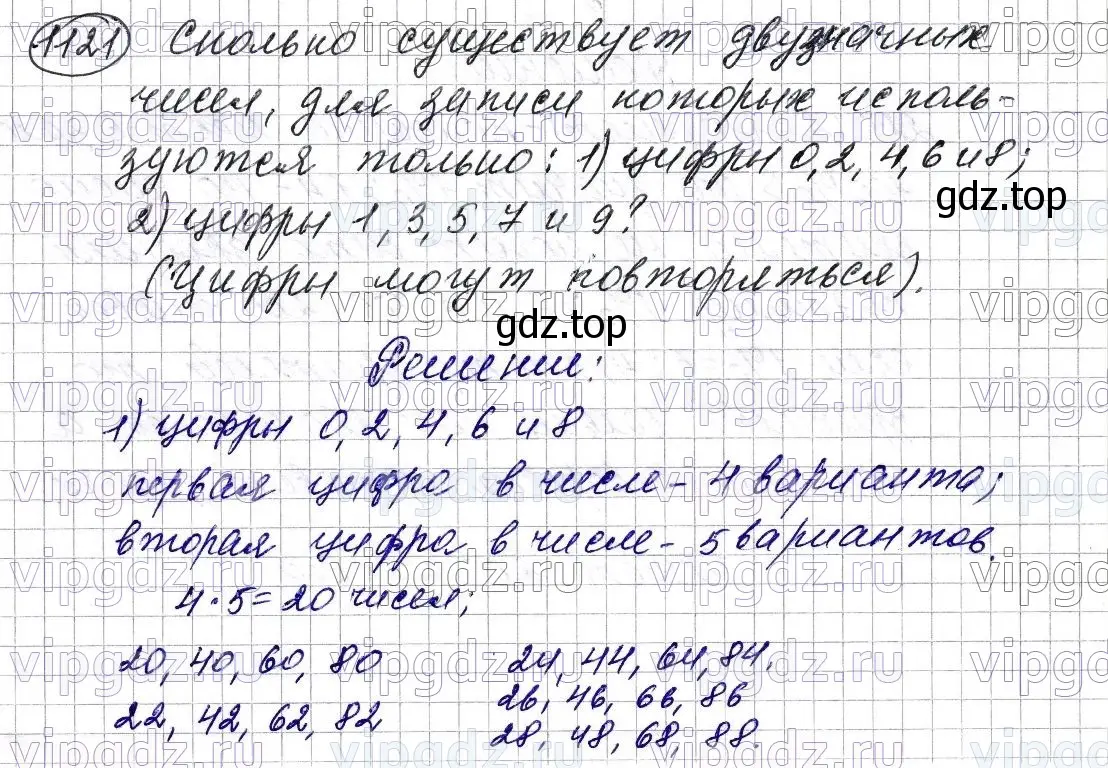 1121 Сколько существует двузначных
чисел, для записи которых исполь-
зуются только: 1) цифры 0, 2, 4, 6 и 8;
gdz.top
2) цифры 1, 3, 5, 7 и 9?
(Цифры могут повторяться).
gdz.top
Решение:
1) цифры 0, 2, 4, 6 и 8
первая цифра в числе - 4 варианта;
вторая цифра в числе - 5 вариантов.
4 · 5 = 20 чисел;
20, 40, 60, 80
24, 44, 64, 84.
26, 46, 66, 86
22, 42, 62, 82
28, 48, 68, 88.
vipgdz.ru